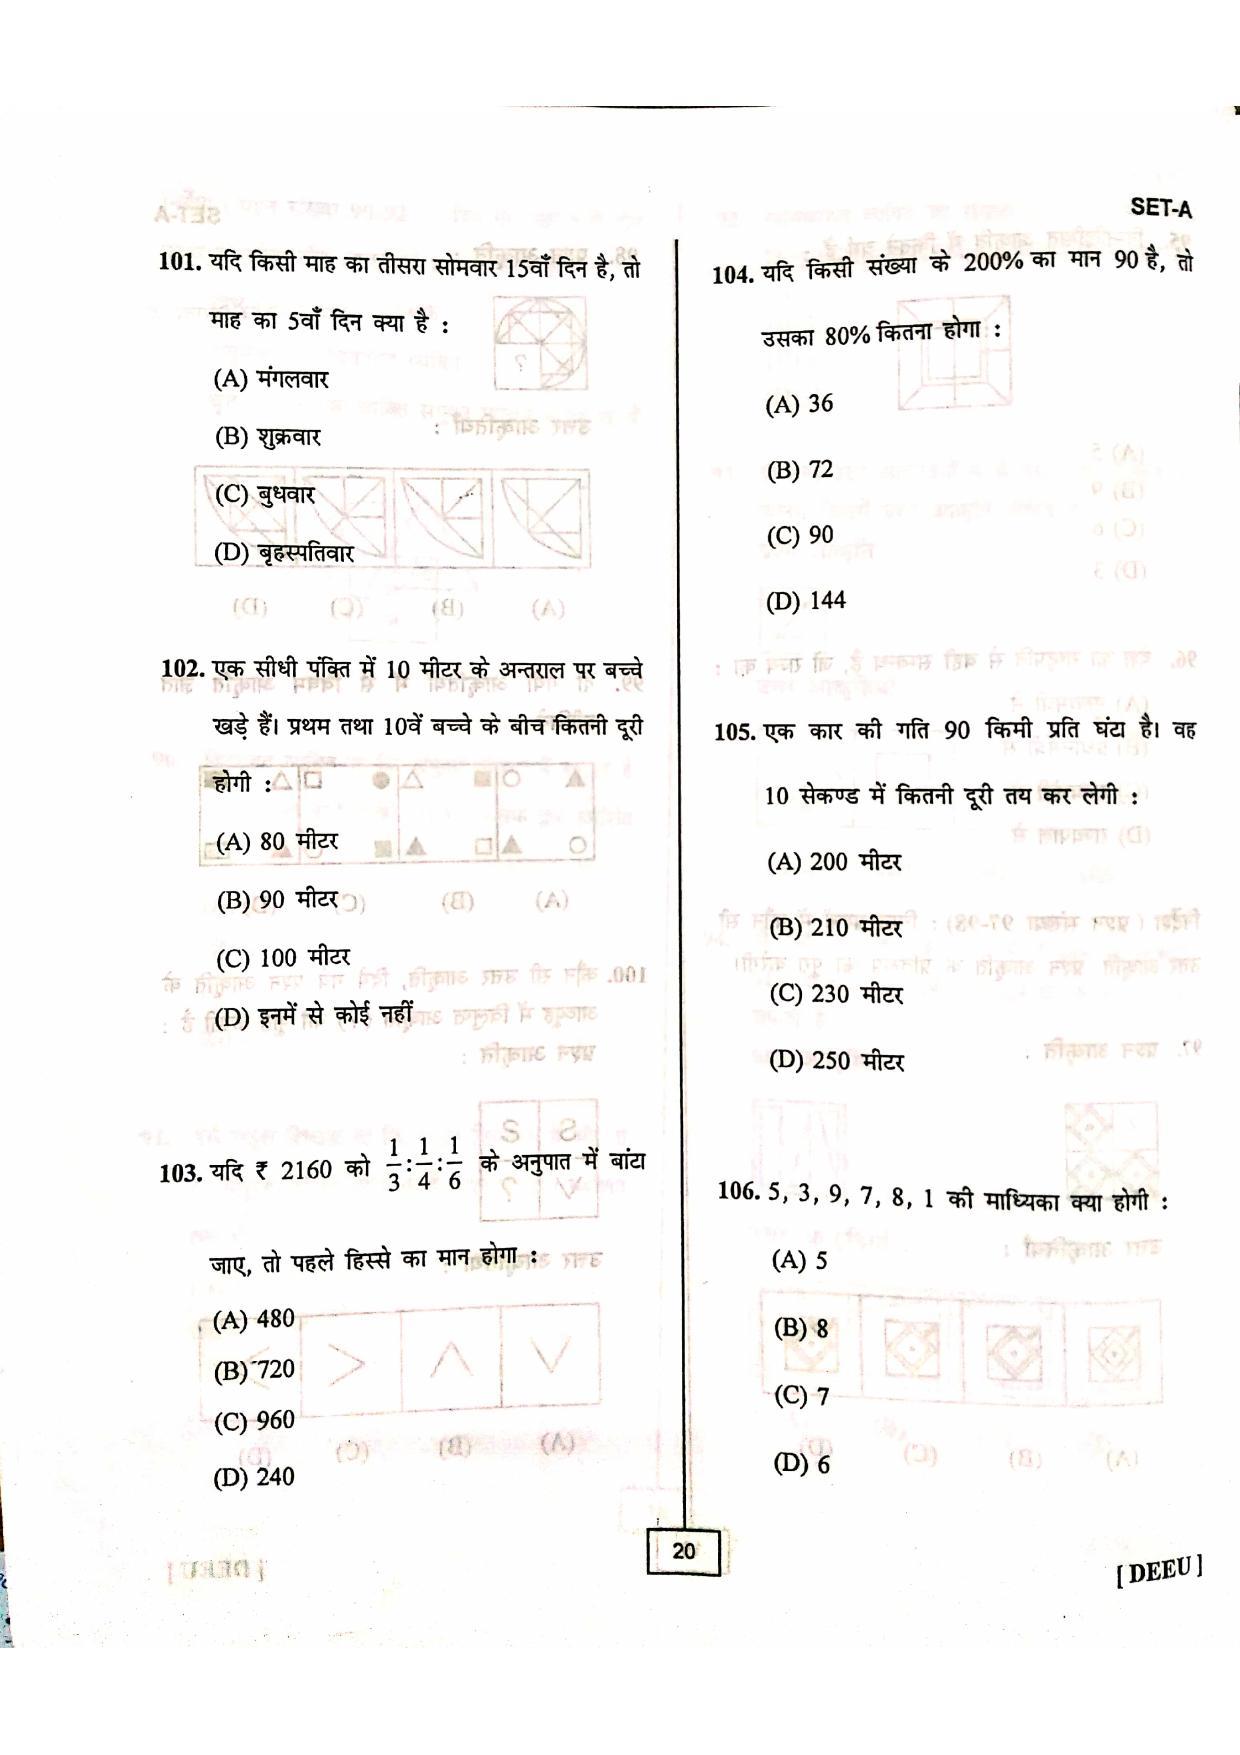 SET-A
101. यदि किसी माह का तीसरा सोमवार 15वाँ दिन है, तो
माह का 5वाँ दिन क्या है :
(A) मंगलवार
(B) शुक्रवार
(C) बुधवार
(D) बृहस्पतिवार
102. एक सीधी पंक्ति में 10 मीटर के अन्तराल पर बच्चे
खड़े हैं। प्रथम तथा 10वें बच्चे के बीच कितनी दूरी
होगी :
(A) 80 मीटर
(B) 90 मीटर
(C) 100 मीटर
(D) इनमें से कोई नहीं
103. यदि ₹ 2160 को 1/3 : 1/4 : 1/6 के अनुपात में बांटा
जाए, तो पहले हिस्से का मान होगा :
(A) 480
(B) 720
(C) 960
(D) 240
104. यदि किसी संख्या के 200% का मान 90 है, तो
उसका 80% कितना होगा :
(A) 36
(B) 72
(C) 90
(D) 144
105. एक कार की गति 90 किमी प्रति घंटा है। वह
10 सेकण्ड में कितनी दूरी तय कर लेगी :
(A) 200 मीटर
(B) 210 मीटर
(C) 230 मीटर
(D) 250 मीटर
106. 5, 3, 9, 7, 8, 1 की माध्यिका क्या होगी :
(A) 5
(B) 8
(C) 7
(D) 6
20
[ DEEU ]